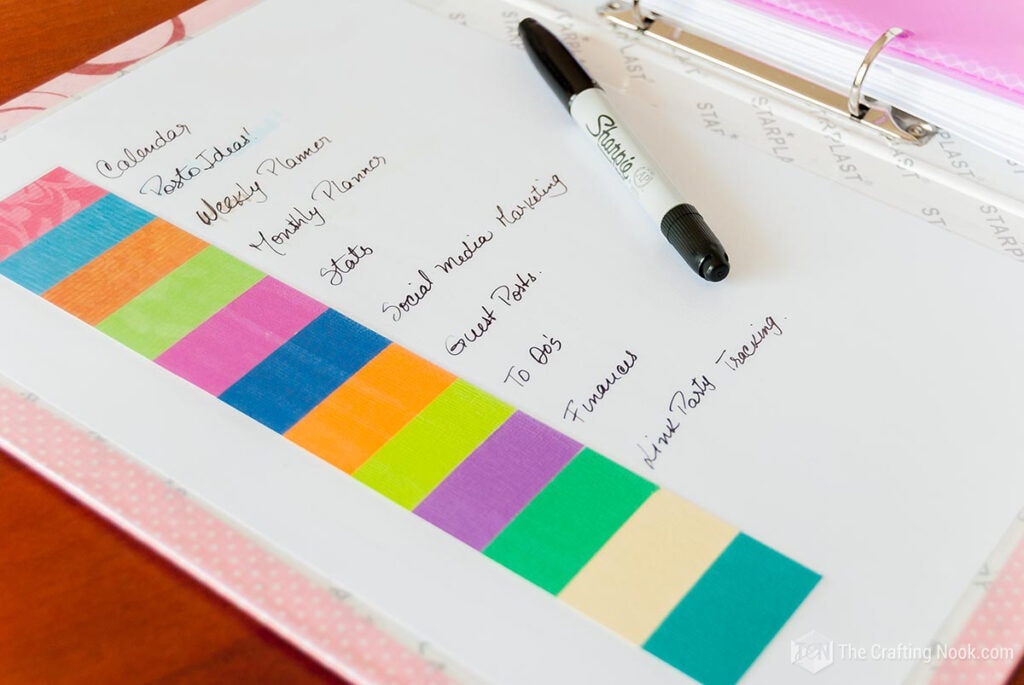 Calendar
Posto Ideas"
Weekly Planner
Monthly Planner
Stats
Social Media Marketing
Guest Posts.
To Do's
Finances
Link Party Tracking.
Sharpie
STARPLAST
STARPLAST
STARPLAST
STARPLAST
STARPLAST
TCN The Crafting Nook.com